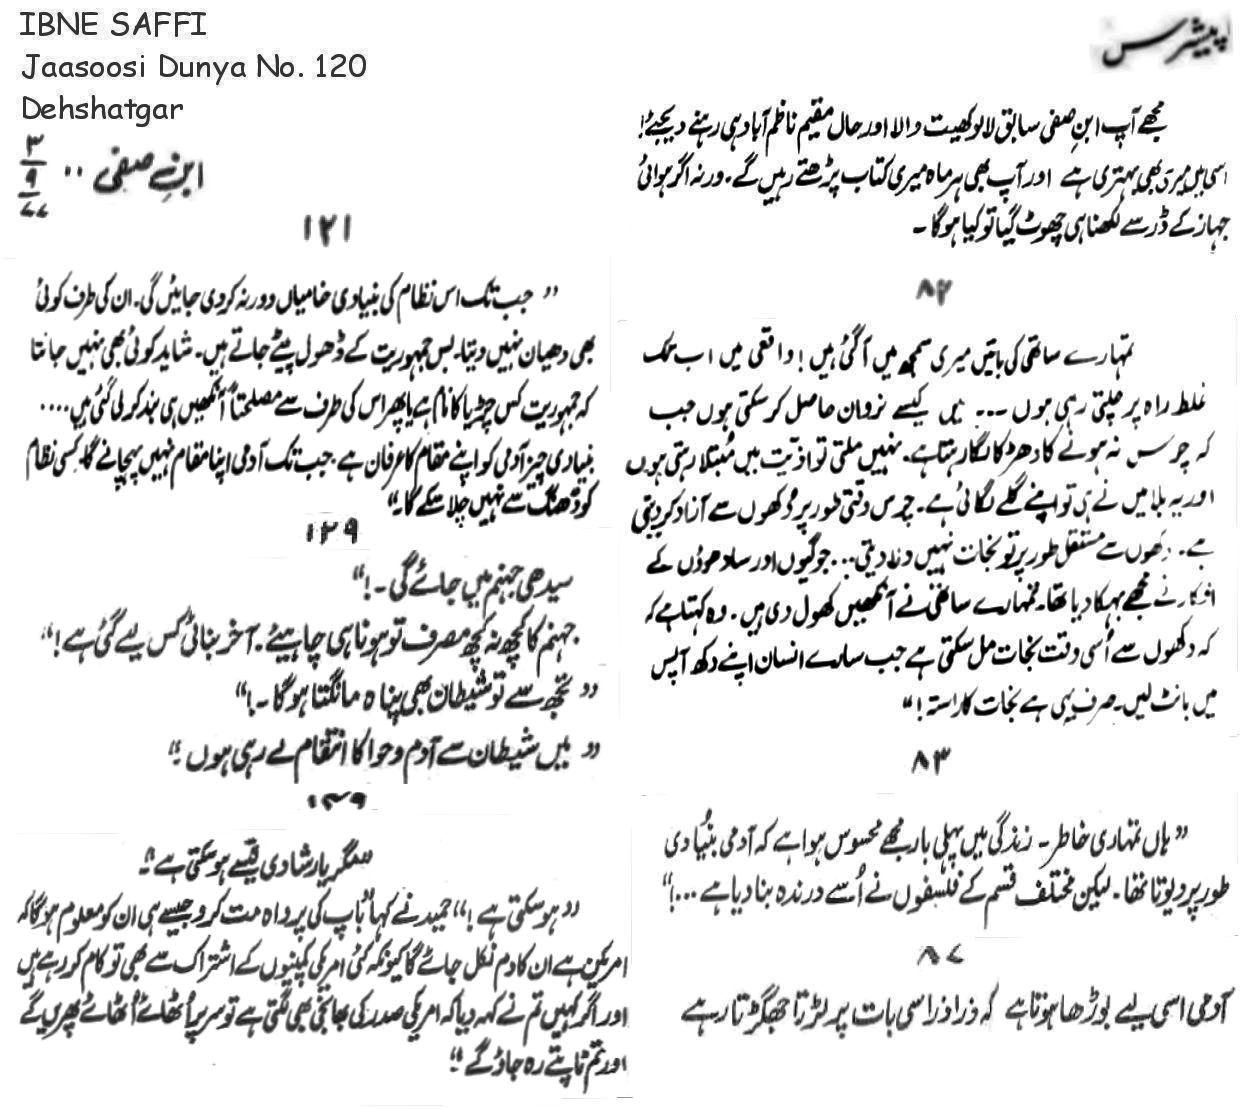 IBNE SAFFI
Jaasoosi Dunya No. 120
Dehshatgar
پیشرس
مجھے آپ ابنِ صفی سابق لالو کھیت والا اور حال مقیم ناظم آباد ہی رہنے دیجئے!
اسی میں میری بھی بہتری ہے اور آپ بھی ہر ماہ میری کتاب پڑھتے رہیں گے۔ ورنہ اگر ہوائی
جہاز کے ڈر سے لکھنا ہی چھوٹ گیا تو کیا ہوگا ۔
ابنِ صفی ۰۰
۳
۹
۷۷
۸۲
تمہارے ساتھی کی باتیں میری سمجھ میں آ گئی ہیں! واقعی میں اب تک
غلط راہ پر چلتی رہی ہوں ... میں کیسے نروان حاصل کر سکتی ہوں جب
کہ چرس نہ ہونے کا دھڑکا لگا رہتا ہے۔ نہیں ملتی تو اذیّت میں مُبتلا رہتی ہوں
اور یہ بلا میں نے ہی تو اپنے گلے لگائی ہے۔ چرس وقتی طور پر دُکھوں سے آزاد کر دیتی
ہے۔ دکھوں سے مستقل طور پر تو نجات نہیں دلا دیتی... جوگیوں اور سادھوؤں کے
افکار نے مجھے بہکا دیا تھا۔ تمہارے ساتھی نے آنکھیں کھول دی ہیں۔ وہ کہتا ہے کہ
کہ دکھوں سے اُسی وقت نجات مل سکتی ہے جب سارے انسان اپنے دکھ آپس
میں بانٹ لیں۔ صرف یہی ہے نجات کا راستہ !"
۸۳
"ہاں تمہاری خاطر ۔ زندگی میں پہلی بار مجھے محسوس ہوا ہے کہ آدمی بنیادی
طور پر دیوتا تھا۔ لیکن مختلف قسم کے فلسفوں نے اُسے درندہ بنا دیا ہے ...!"
۸۷
آدمی اسی لیے بوڑھا ہوتا ہے کہ ذرا ذرا سی بات پر لڑتا جھگڑتا رہے
۱۲۱
"جب تک اس نظام کی بنیادی خامیاں دور نہ کر دی جائیں گی۔ ان کی طرف کوئی
بھی دھیان نہیں دیتا۔ بس جمہوریت کے ڈھول پیٹے جاتے ہیں۔ شاید کوئی بھی نہیں جانتا
کہ جمہوریت کس چڑیا کا نام ہے یا پھر اس کی طرف سے مصلحتاً آنکھیں ہی بند کر لی گئی ہیں ....
بنیادی چیز آدمی کو اپنے مقام کا عرفان ہے۔ جب تک آدمی اپنا مقام نہیں پہچانے گا۔ کسی نظام
کو ڈھنگ سے نہیں چلا سکے گا۔"
۱۲۹
سیدھی جہنم میں جائے گی ۔!"
جہنم کا کچھ نہ کچھ مصرف تو ہونا ہی چاہیئے۔ آخر بنائی کس لیے گئی ہے !"
"تجھ سے تو شیطان بھی پناہ مانگتا ہوگا ۔!"
"میں شیطان سے آدم و حوا کا انتقام لے رہی ہوں ۔"
۱۳۹
"مگر یار شادی کیسے ہو سکتی ہے ؟"
"ہو سکتی ہے !" حمید نے کہا "باپ کی پرواہ مت کرو جیسے ہی ان کو معلوم ہوگا کہ
امریکن ہے ان کا دم نکل جائے گا کیونکہ کئی امریکی کمپنیوں کے اشتراک سے بھی تو کام کر رہے ہیں
اور اگر کہیں تم نے کہہ دیا کہ امریکی صدر کی بھانجی بھی لگتی ہے تو سر پر اُٹھائے اُٹھائے پھریں گے
اور تم ناپتے رہ جاؤ گے ۔"